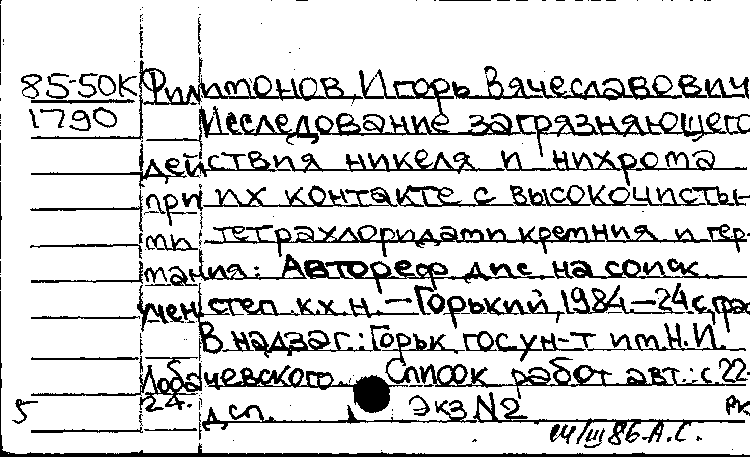 85-50К Филимонов Игорь Вячеславович
1790 Исследование загрязняющего
действия никеля и нихрома
при их контакте с высокочисты-
ми тетрахлоридами кремния и гер-
мания: Автореф дис на соиск
учен степ к.х.н. – Горький, 1984 – 24 с, граф
В надзаг: Горьк гос ун-т им Н.И.
Лобачевского. Список работ авт.: с 22-
24. дсп. Экз N2 РК
5
14/III 86 А.С.